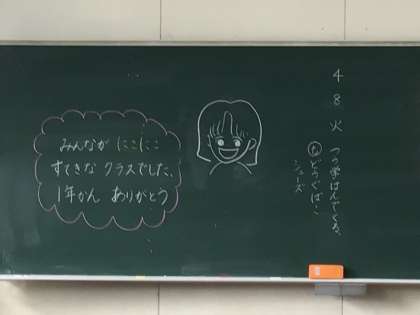 4
8
火
つうがくはんでくる、
みんなが にこにこ
すてきな クラスでした、
1年かん ありがとう
どうぐばこ
シューズ